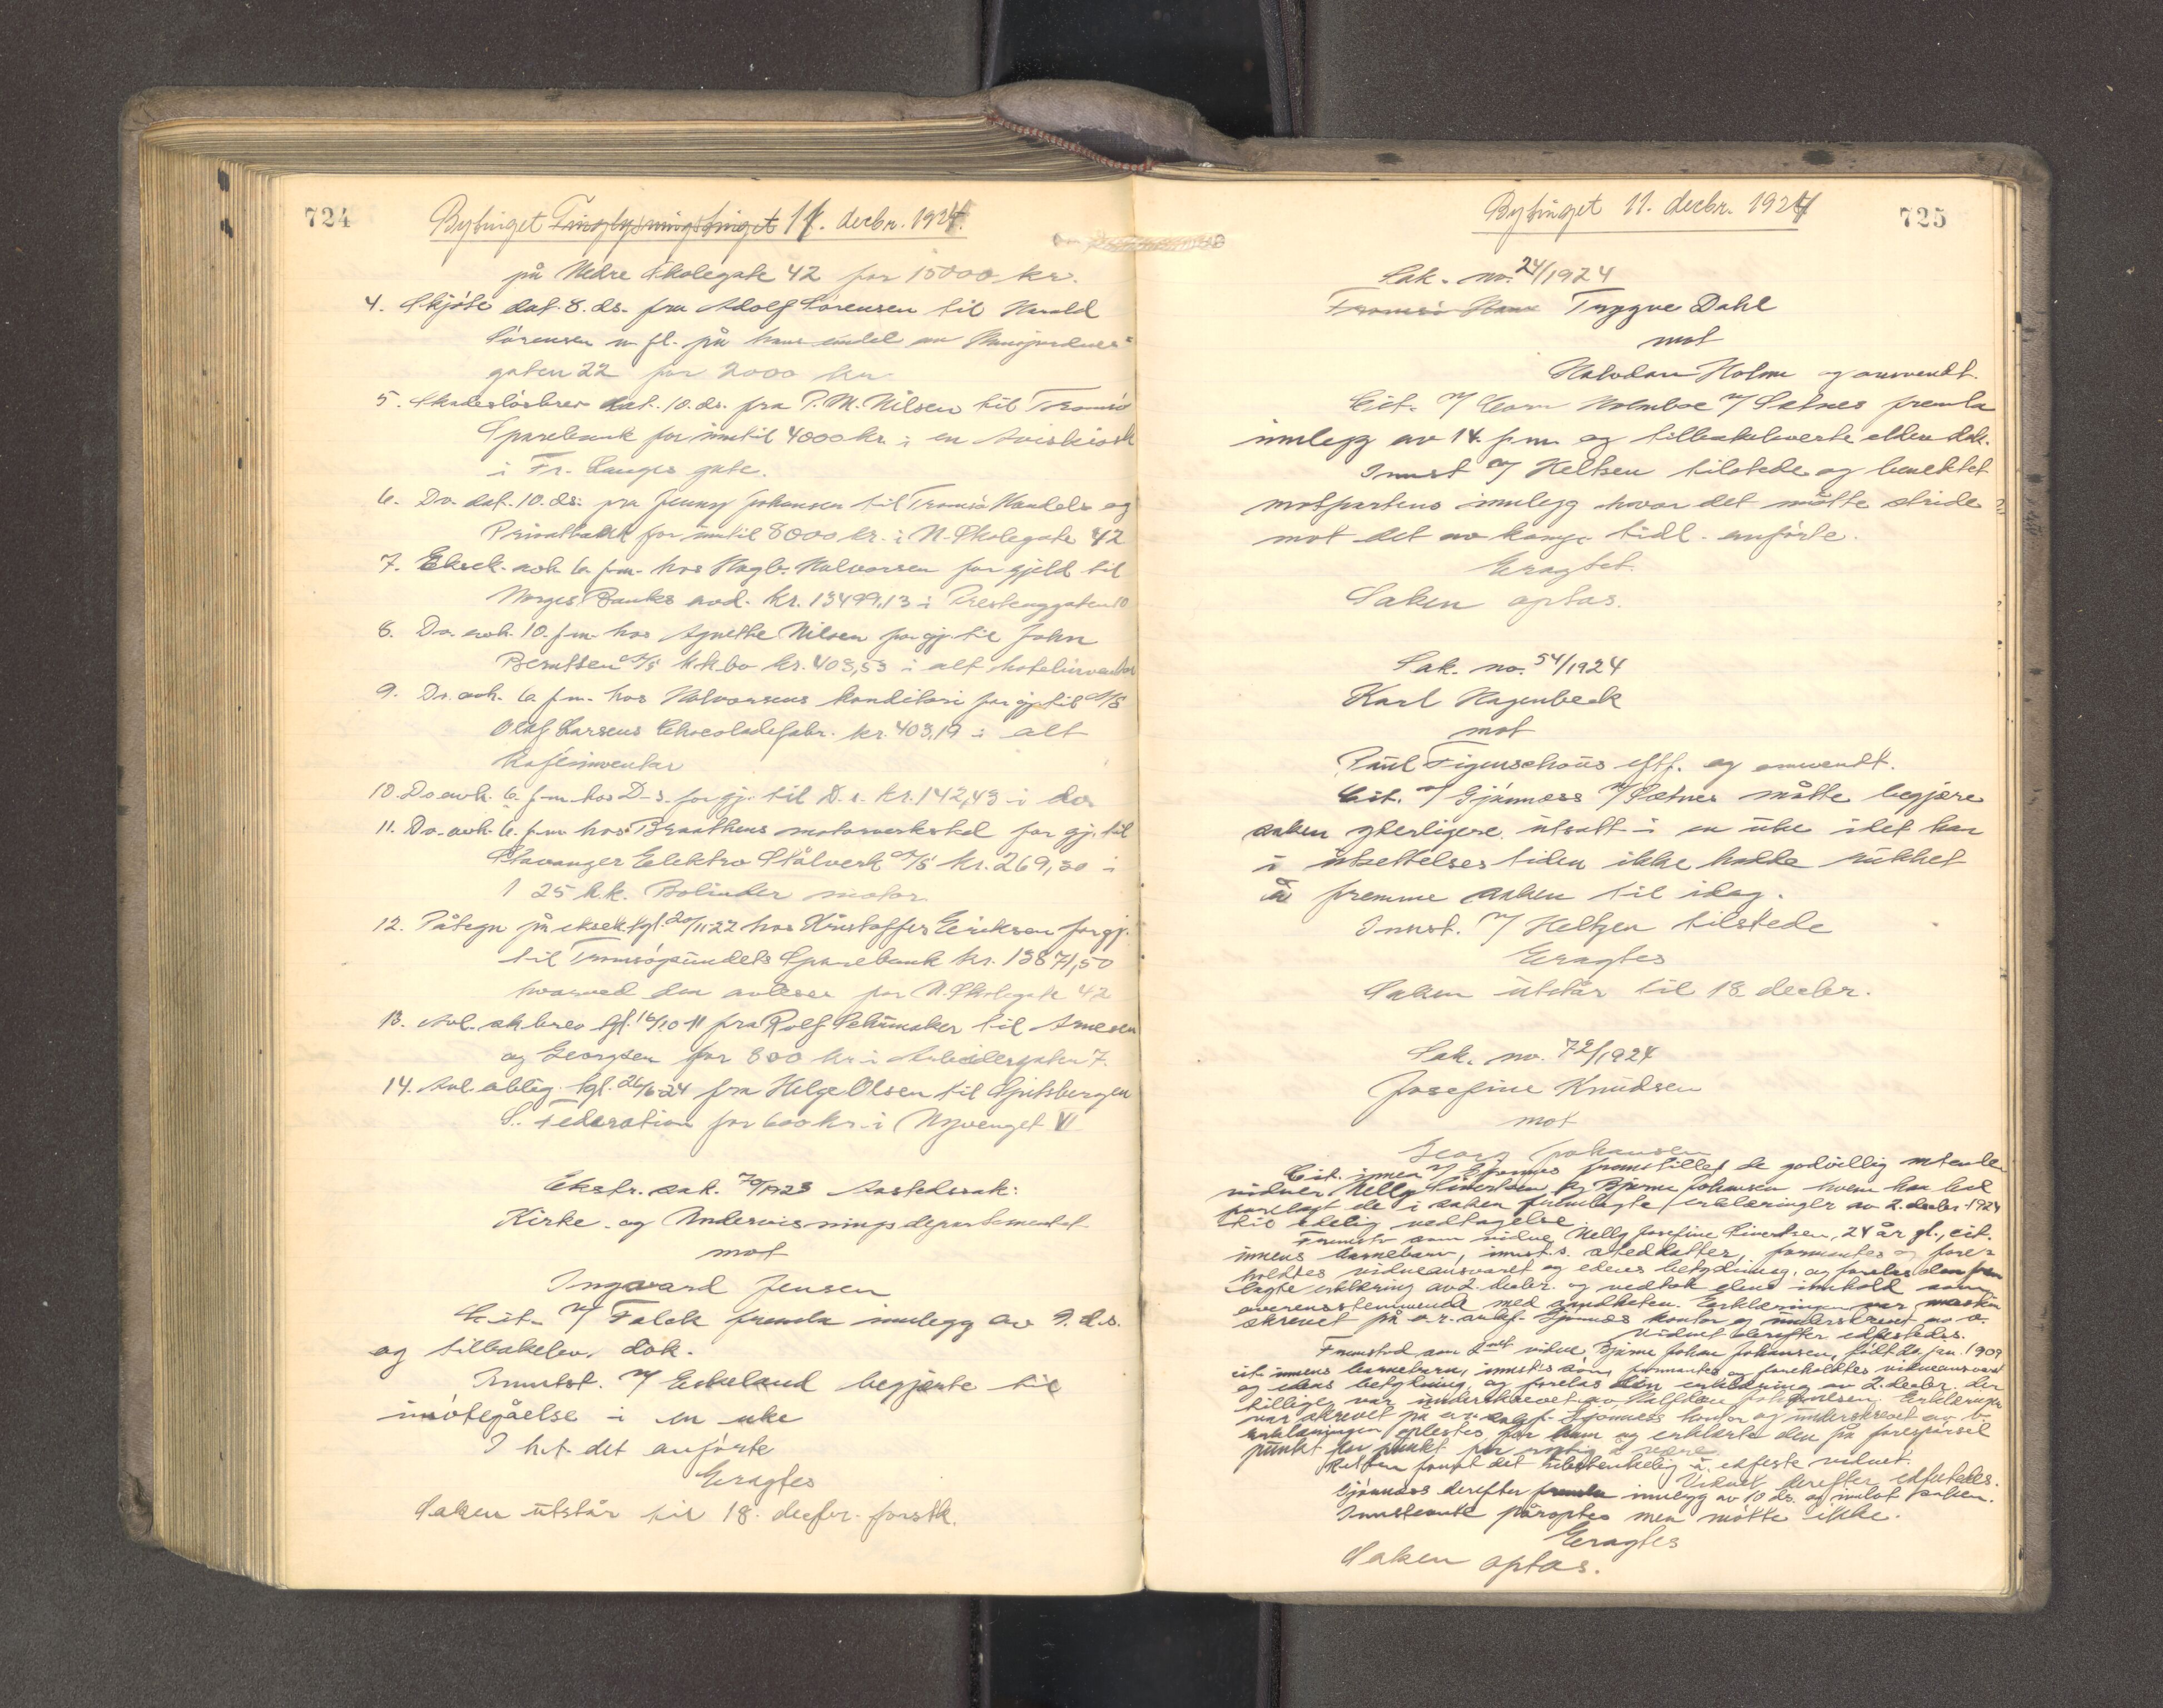 724
Bytinget Tinglysningstinget 11. decbr. 1924.
på Nedre Skolegate 42 for 15000 kr.
4. Skjøte dat. 8. ds. fra Adolf Sørensen til Harald
Sørensen m. fl. på hans andel av
gaten 22 for 2000 kr.
5. Skadesløsbrev dat. 10. ds. fra P. M. Nilsen til Tromsø
Sparebank for inntil 4000 kr. i en Aviskiosk
i Fr. Langes gate.
6. Do. dat. 10. ds. fra Jenny Johansen til Tromsø Handels og
Privatbank for inntil 8000 kr. i N. Skolegate 42
7. Eksek. avh. 6. f.m. hos Hagb. Halvorsen for gjeld til
Norges Banks avd. kr. 13499,13 i Prestenggaten 10
8. Do. avh. 10. f.m. hos Agnethe Nilsen for gj. til John
Berntsen A/S k.k.bo kr. 403,53 i alt hotelinventar
9. Do. avh. 6. f.m. hos Halvorsens konditori for gj. til A/S
Olaf Larsens Chocoladefabr. kr. 403,19 i alt
kaféinventar
10. Do avh. 6. f.m. hos D-s. for gj. til D. s. kr. 142,43 i do
11. Do. avh. 6. f.m. hos Braathens motorverksted for gj. til
Stavanger Elektro Stålverk A/S kr. 269,30 i
1 25 h.k. Bolinder motor
12. Påtegn på eksek. tgl. 20/11.22 hos Kristoffer Eriksen for gj.
til Tromsøsundets Sparebank kr. 13871,50
hvorved den avleses for N. Skolegate 42
13. Avl. sk.brev tgl. 16/10 11 fra Rolf Schumaker til Arnesen
og Georgsen for 800 kr. i Arbeidergaten 7.
14. Avl. oblig. tgl. 26/6-24 fra Helge Olsen til Spitsbergen
S. Federation for 600 kr. i Nyvenget VI
Ekstr. sak. 70/1923 Aastedssak:
Kirke- og Undervisningsdepartementet
mot
Ingvard Jensen
Cit. v/ Falck fremla innlegg av 9. d.s.
og tilbakelev. dok.
Innstst. v/ Eskeland begjærte til
imøtegåelse i en uke
I h.t. det anførte
Eragtes
Saken utstår til 18. decbr. førstk.
725
Bytinget 11. decbr. 1924
Sak. no. 24/1924
Tromsø Trygve Dahl
mot
Halvdan Holm og omvendt.
Cit. v/ Corn Holmboe v/ Sætnes fremla
innlegg av 14. f.m. og tilbakeleverte dok.
Innst v/ Heltzen tilstede og benektet
motpartens innlegg hvor det måtte stride
mot det av ham tidl. anførte.
Eragtet.
Saken optas.
Sak. no. 54/1924
Karl Hagenbeck
mot
Paul Figenschous eftf. og omvendt.
Cit. v/ Gjönnæss v/ Sætnes måtte begjære
saken yterligere utsatt i en uke idet han
i utsettelsestiden ikke hadde rukket
å fremme saken til idag.
Innst. v/ Heltzen tilstede
Eragtes
Saken utstår til 18 decbr.
Sak. no. 72/1924
Josefine Knudsen
mot
Georg Johansen
Cit.innen v/ Gjönnæss fremstillet de godvillig møtende
vidner Nelly Sivertsen og Bjarne Johansen hvem han lod
forelagt de i saken fremlagte erklæringer av 2. decbr. 1924
til edelig vedtagelse.
Fremstod som vidne Nelly Josefine Sivertsen, 24 år gl., cit.
innens barnebarn, innst.s. steddatter, formantes og fore-
holdtes vidneansvaret og edens betydning, og forelas den frem
lagte erklæring av 2. decbr. og vedtok dens innhold som
overensstemmende med sandheten. Erklæringen var maskin
skrevet på o.r.sakf. Gjønnæs kontor og underskrevet av a.
Vidnet derefter edfestedes.
Fremstod som 2net vidne Bjarne Johan Johansen, født 22 jan. 1909
cit. innens barnebarn, innst.s søn, formantes og foreholdtes vidneansvaret
og edens betydning og forelas den erklæring av 2. decbr. der
tillige var underskrevet av Halfdan Johannesen. Erklæringen
var skrevet på o.r.sakf. Gjønnæss kontor og underskrevet av b.
erklæringen oplestes for ham og erklærte den på forespørsel
punkt for punkt for rigtig å være.
Retten fandt det ubetenkelig å edfeste vidnet.
Vidnet derefter edfestedes.
Gjönnæss derefter fremla innlegg av 10 ds. og inlot saken.
Innstevnte påroptes men møtte ikke.
Eragtes
Saken optas.